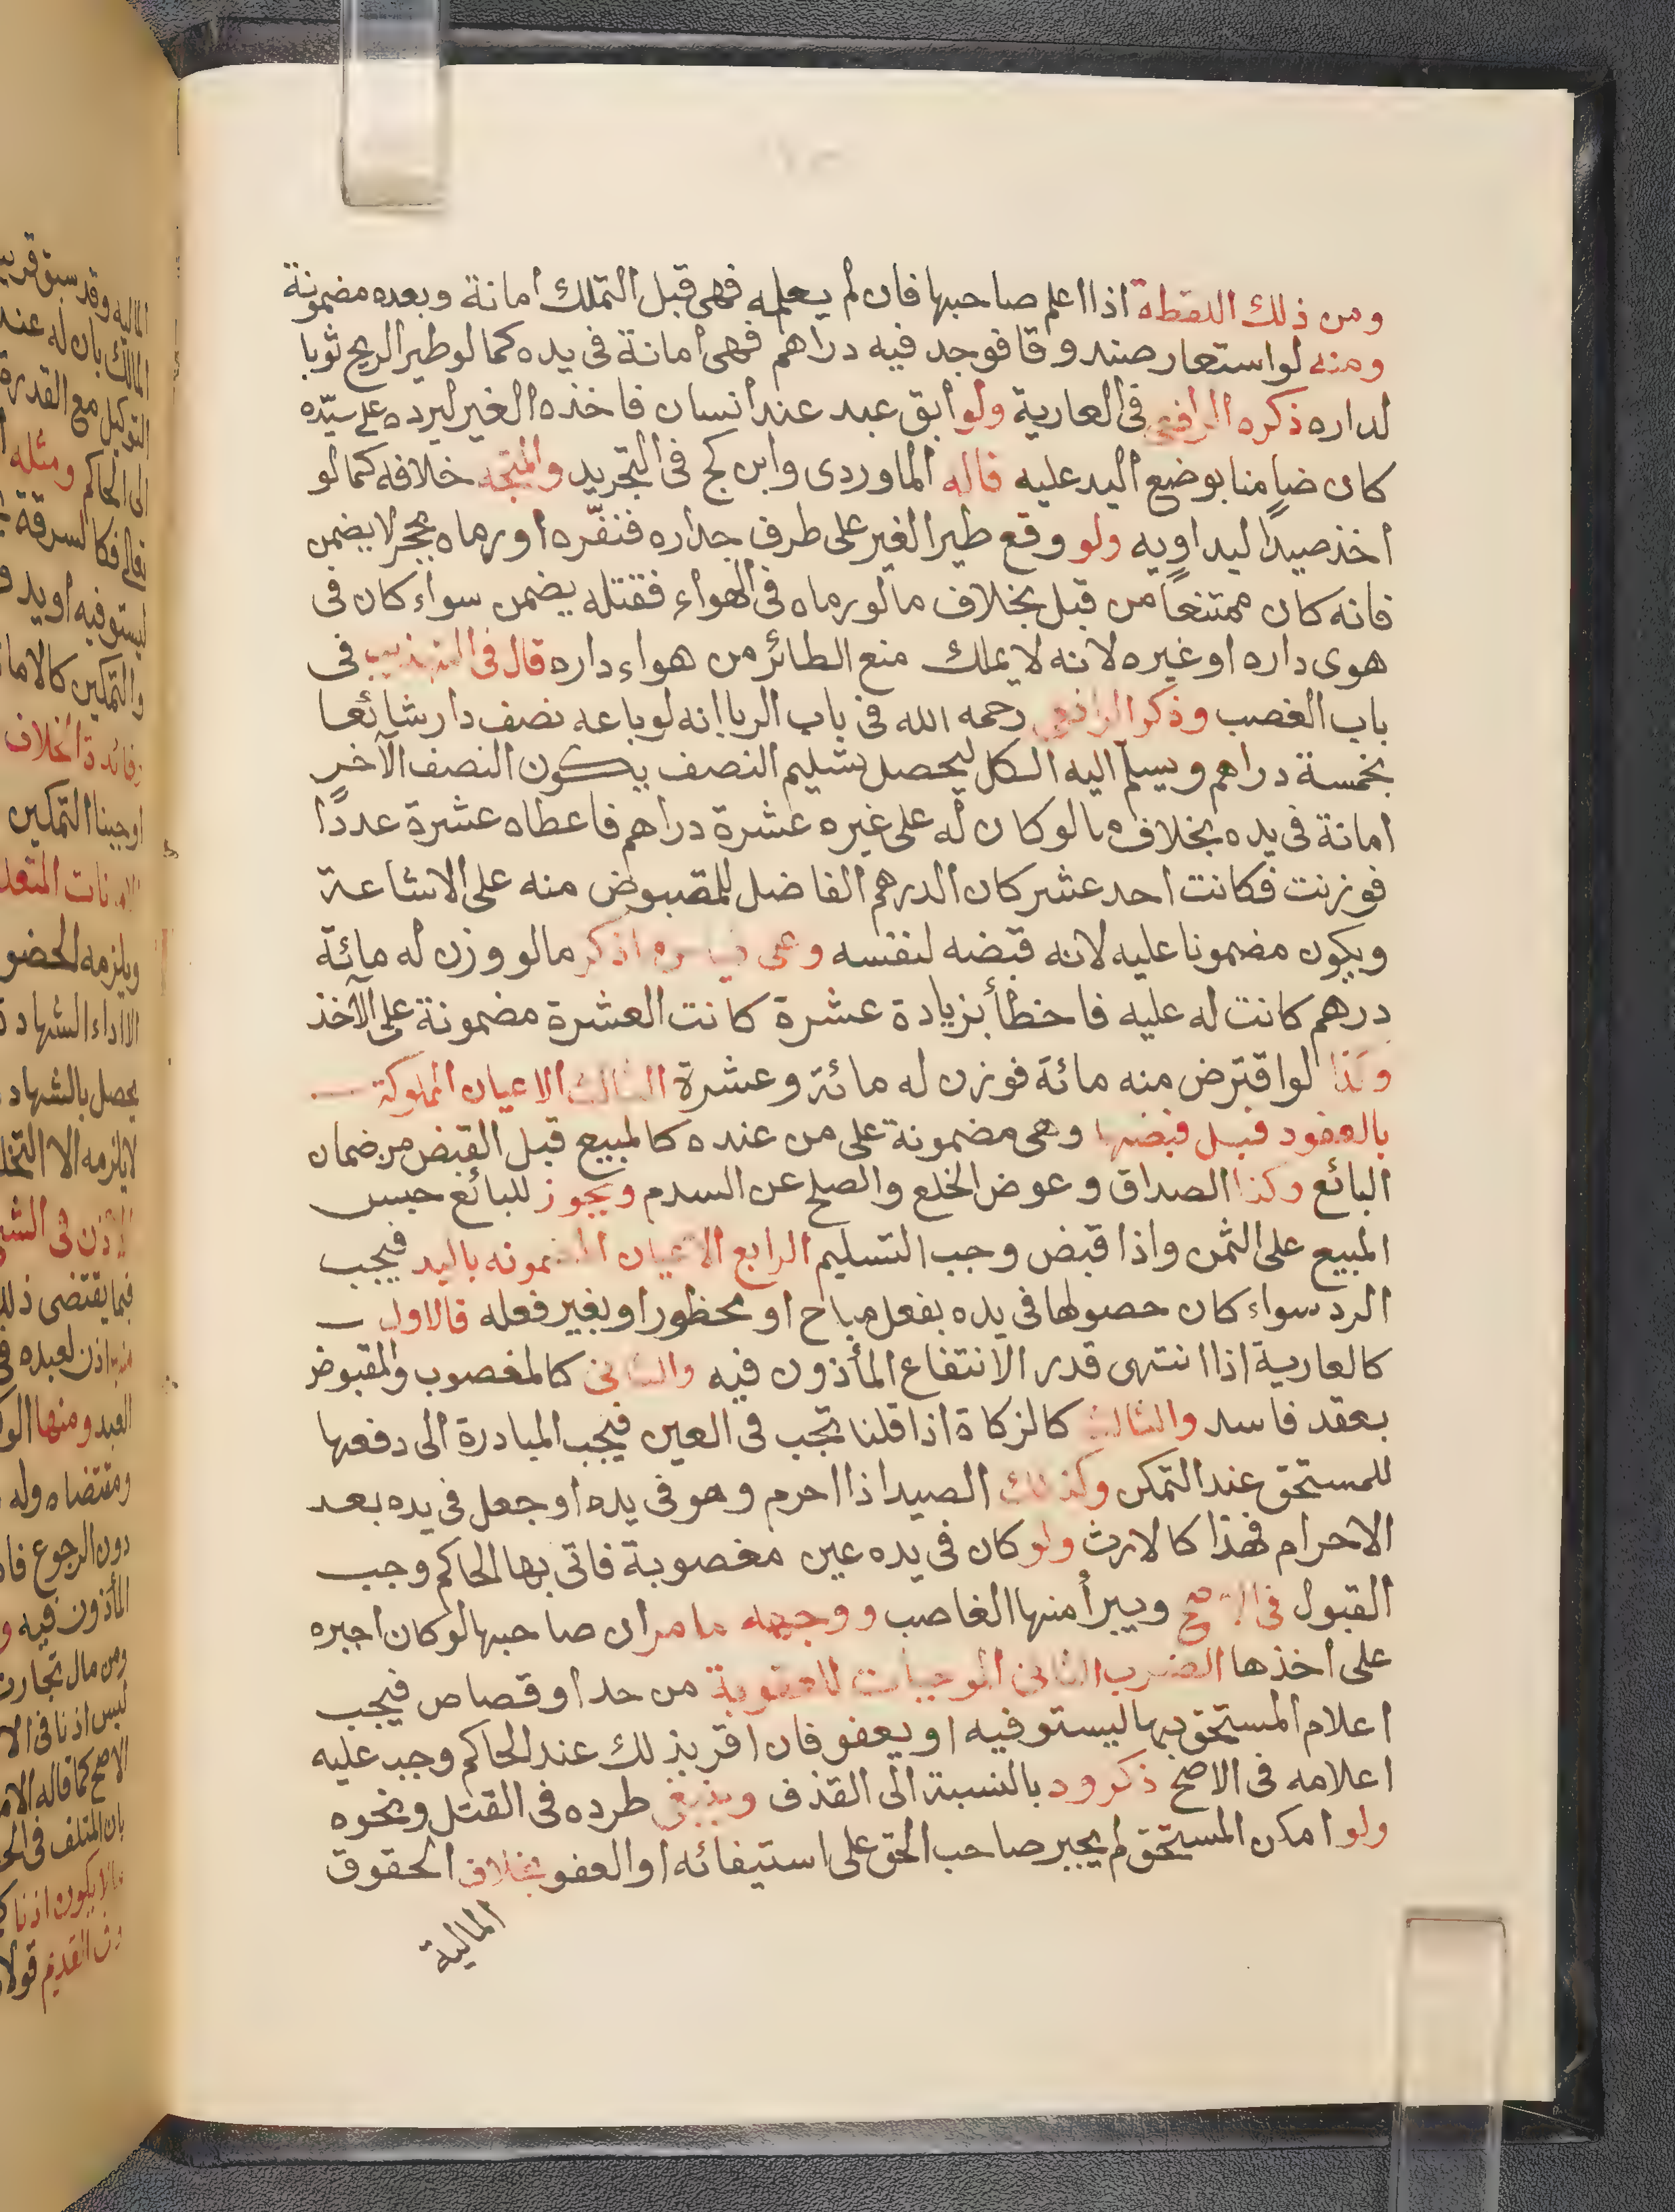 ومن ذلك اللقطة اذا اعلم صاحبها فان لم يعلمه فهى قبل التملك امانة وبعده مضمونة
ومنه لو استعار صندوقا فوجد فيه دراهم فهى امانة فى يده كما لو طير الريح ثوبا
لداره ذكره الرافعى فى العارية ولو ابق عبد عند انسان فاخذه الغير ليرده على سيّده
كان ضامنا بوضع اليد عليه قاله الماوردى وابن كج فى التجريد والمتجه خلافه كما لو
اخذ صيدًا ليداويه ولو وقع طير الغير على طرف جداره فنفّره او رماه بحجر لا يضمن
فانه كان ممتنعاً من قبل بخلاف ما لو رماه فى الهواء فقتله يضمن سواء كان فى
هوى داره او غيره لانه لا يملك منع الطائر من هواء داره قال فى التهذيب فى
باب الغصب وذكر الرافعى رحمه الله فى باب الربا انه لو باعه نصف دار شائعا
بخمسة دراهم ويسلّم اليه الكل ليحصل تسليم النصف يكون النصف الآخر
امانة فى يده بخلاف ما لو كان له على غيره عشرة دراهم فاعطاه عشرة عددًا
فوزنت فكانت احد عشر كان الدرهم الفاضل للمقبوض منه على الاشاعة
ويكون مضمونا عليه لانه قبضه لنفسه وعلى قياسه اذكر ما لو وزن له مائة
درهم كانت له عليه فاخطأ بزيادة عشرة كانت العشرة مضمونة على الآخذ
وكذا لو اقترض منه مائة فوزن له مائة وعشرة الثالث الاعيان المملوكة
بالعقود قبل قبضها وهى مضمونة على من عنده كالمبيع قبل القبض من ضمان
البائع وكذا الصداق وعوض الخلع والصلح عن السدم ويجوز للبائع حبس
المبيع على الثمن واذا قبض وجب التسليم الرابع الاعيان المضمونه باليد فيجب
الرد سواء كان حصولها فى يده بفعل مباح او محظور او بغير فعله فالاول
كالعارية اذا انتهى قدر الانتفاع المأذون فيه والثانى كالمغصوب والمقبوض
بعقد فاسد والثالث كالزكاة اذا قلنا تجب فى العين فيجب المبادرة الى دفعها
للمستحق عند التمكن وكذلك الصيد اذا احرم وهو فى يده او جعل فى يده بعد
الاحرام فهذا كالارث ولو كان فى يده عين مغصوبة فاتى بها الحاكم وجب
القبول فى الاصح ويبرأ منها الغاصب ووجهه ما مر ان صاحبها لو كان اجبره
على اخذها الضرب الثانى الموجبات للعقوبة من حد او قصاص فيجب
اعلام المستحق بها ليستوفيه او يعفو فان اقر بذلك عند الحاكم وجب عليه
اعلامه فى الاصح ذكروه بالنسبة الى القذف وينبغى طرده فى القتل ونحوه
ولو امكن المستحق لم يجبر صاحب الحق على استيفائه او العفو بخلاف الحقوق
المالية